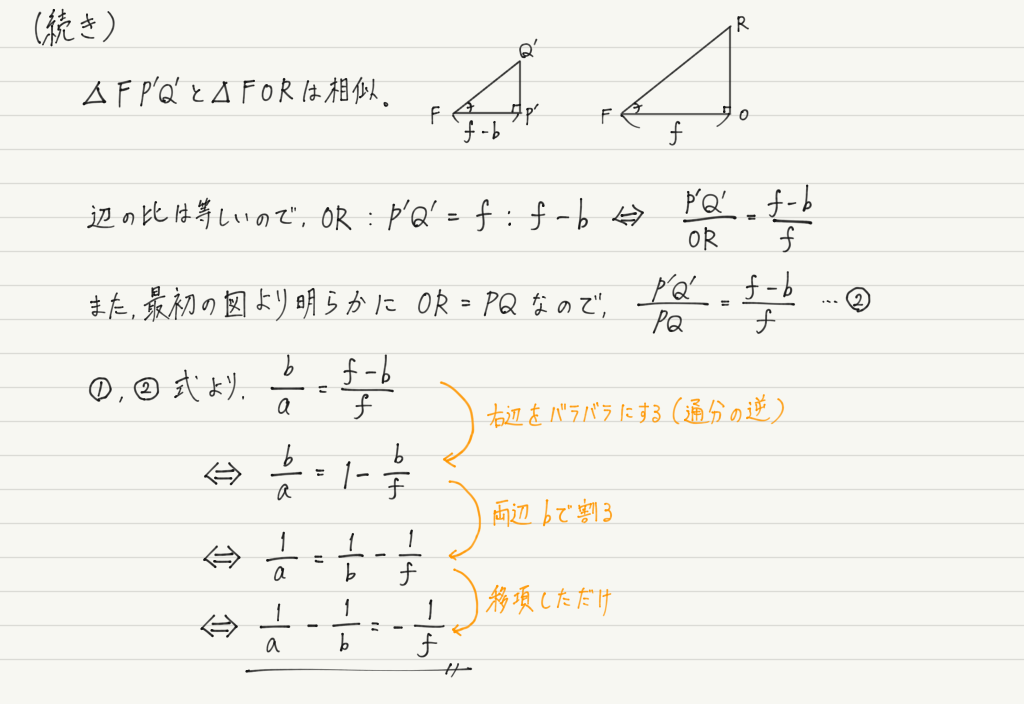 (続き)
△FP'Q'と△FORは相似.
Q'
F
P'
f-b
R
F
O
f
辺の比は等しいので, OR : P'Q' = f : f-b ⇔ P'Q'/OR = f-b/f
また, 最初の図より明らかに OR = PQ なので, P'Q'/PQ = f-b/f … ②
①, ② 式より. b/a = f-b/f
右辺をバラバラにする(通分の逆)
⇔ b/a = 1 - b/f
両辺 bで割る
⇔ 1/a = 1/b - 1/f
移項しただけ
⇔ 1/a - 1/b = - 1/f